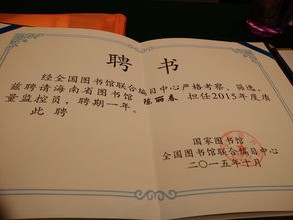 聘 书
经全国图书馆联合编目中心严格考察、筛选，
兹聘请海南省图书馆 陈丽春 担任2015年度质
量监控员，聘期一年。
此聘
国家图书馆
全国图书馆联合编目中心
二〇一五年十月